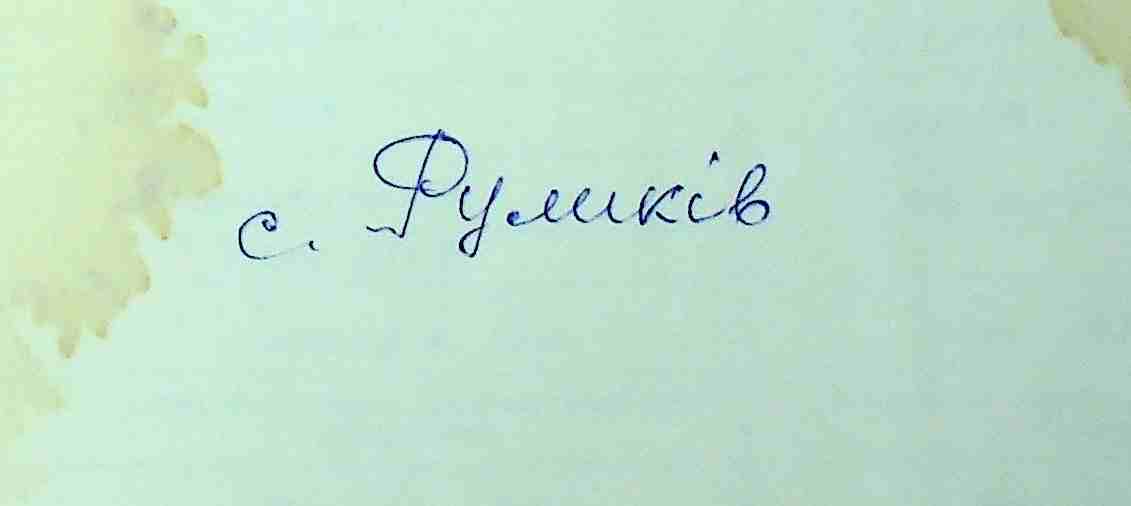 с. Руликів